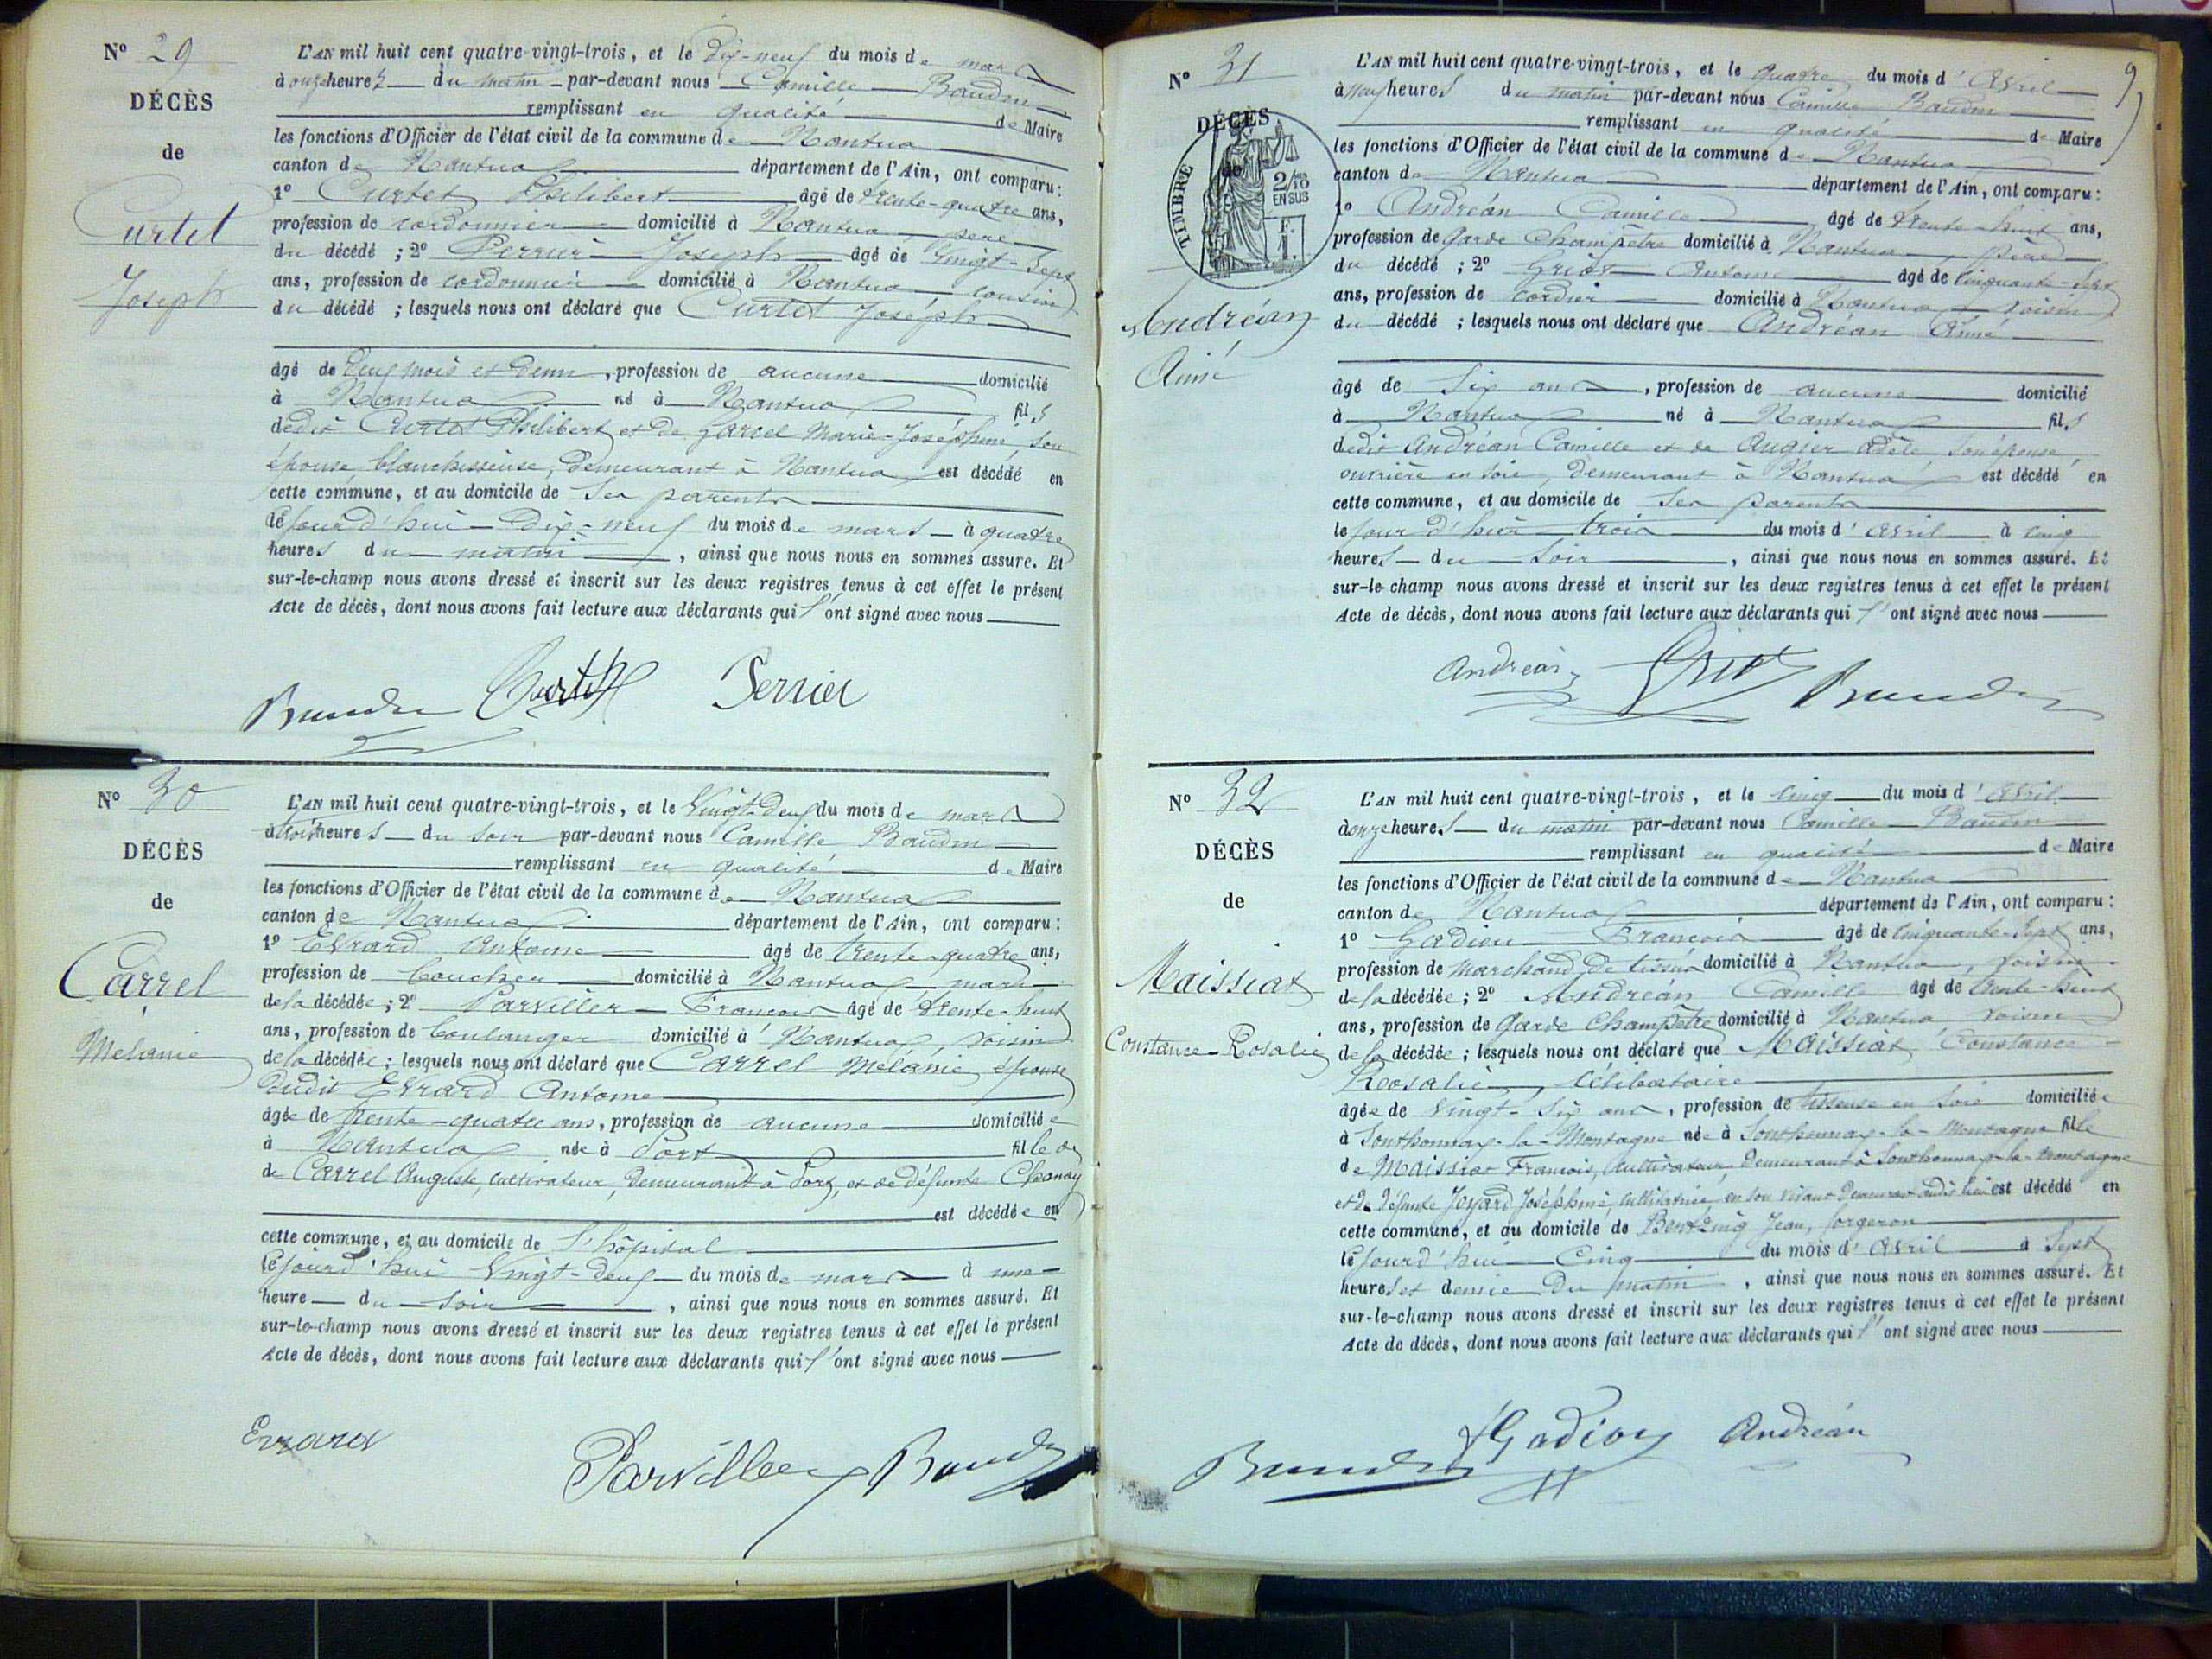 N° 29
DÉCÈS
de
Curtet
Joseph
L'AN mil huit cent quatre-vingt-trois, et le dix-neuf du mois de mars
à onze heures du matin par-devant nous Camille Baudin
remplissant en qualité de Maire
les fonctions d'Officier de l'état civil de la commune de Nantua
canton de Nantua département de l'Ain, ont comparu:
1° Curtet Philibert âgé de trente-quatre ans,
profession de cordonnier domicilié à Nantua, père
du décédé; 2° Perrier Joseph âgé de vingt-sept
ans, profession de cordonnier domicilié à Nantua cousin
du décédé; lesquels nous ont déclaré que Curtet Joseph
âgé de deux mois et demi, profession de aucune domicilié
à Nantua né à Nantua fils
dedit Curtet Philibert et de Garcel Marie-Joséphine son
épouse blanchisseuse, demeurant à Nantua est décédé en
cette commune, et au domicile de ses parents
le jourd'hui dix-neuf du mois de mars à quatre
heures du matin, ainsi que nous nous en sommes assuré. Et
sur-le-champ nous avons dressé et inscrit sur les deux registres tenus à cet effet le présent
Acte de décès, dont nous avons fait lecture aux déclarants qui l'ont signé avec nous
Baudin Curtet Perrier
N° 30
DÉCÈS
de
Carrel
Mélanie
L'AN mil huit cent quatre-vingt-trois, et le vingt-deux du mois de mars
à trois heures du soir par-devant nous Camille Baudin
remplissant en qualité de Maire
les fonctions d'Officier de l'état civil de la commune de Nantua
canton de Nantua département de l'Ain, ont comparu:
1° Evrard Antoine âgé de trente-quatre ans,
profession de boucher domicilié à Nantua mari
de la décédée; 2° Parviller François âgé de trente-huit
ans, profession de boulanger domicilié à Nantua, voisin
de la décédée; lesquels nous ont déclaré que Carrel Mélanie épouse
dudit Evrard Antoine
âgée de trente-quatre ans, profession de aucune domiciliée
à Nantua née à Port fille de
de Carrel Auguste, cultivateur, demeurant à Port, et de défunte Chanay
est décédée en
cette commune, et au domicile de l'hôpital
le jourd'hui vingt-deux du mois de mars à une
heure du soir, ainsi que nous nous en sommes assuré. Et
sur-le-champ nous avons dressé et inscrit sur les deux registres tenus à cet effet le présent
Acte de décès, dont nous avons fait lecture aux déclarants qui l'ont signé avec nous
Evrard Parviller Baudin
9
N° 31
DÉCÈS
de
TIMBRE
2/10 EN SUS
F. 1.
Andréan
Aimé
L'AN mil huit cent quatre-vingt-trois, et le quatre du mois d'avril
à neuf heures du matin par-devant nous Camille Baudin
remplissant en qualité de Maire
les fonctions d'Officier de l'état civil de la commune de Nantua
canton de Nantua département de l'Ain, ont comparu:
1° Andréan Camille âgé de trente-huit ans,
profession de garde champêtre domicilié à Nantua, père
du décédé; 2° Griot Antoine âgé de cinquante-sept
ans, profession de cordier domicilié à Nantua voisin
du décédé; lesquels nous ont déclaré que Andréan Aimé
âgé de six ans, profession de aucune domicilié
à Nantua né à Nantua fils
dedit Andréan Camille et de Augier Adèle son épouse
ouvrière en soie, demeurant à Nantua est décédé en
cette commune, et au domicile de ses parents
le jour d'hier trois du mois d'avril à cinq
heures du soir, ainsi que nous nous en sommes assuré. Et
sur-le-champ nous avons dressé et inscrit sur les deux registres tenus à cet effet le présent
Acte de décès, dont nous avons fait lecture aux déclarants qui l'ont signé avec nous
Andréan Griot Baudin
N° 32
DÉCÈS
de
Maissiat
Constance-Rosalie
L'AN mil huit cent quatre-vingt-trois, et le cinq du mois d'avril
à onze heures du matin par-devant nous Camille Baudin
remplissant en qualité de Maire
les fonctions d'Officier de l'état civil de la commune de Nantua
canton de Nantua département de l'Ain, ont comparu:
1° Gadiou François âgé de cinquante-sept ans,
profession de marchand de tissus domicilié à Nantua, voisin
de la décédée; 2° Andréan Camille âgé de trente-huit
ans, profession de garde champêtre domicilié à Nantua voisin
de la décédée; lesquels nous ont déclaré que Maissiat Constance
Rosalie, célibataire
âgée de vingt-six ans, profession de tisseuse en soie domiciliée
à Sonthonnax-la-Montagne née à Sonthonnax-la-Montagne fille
de Maissiat François, cultivateur, demeurant à Sonthonnax-la-Montagne
et de défunte Joyard Joséphine, cultivatrice, en son vivant demeurant audit lieu est décédé en
cette commune, et au domicile de Jean, forgeron
le jourd'hui cinq du mois d'avril à sept
heures et demie du matin, ainsi que nous nous en sommes assuré. Et
sur-le-champ nous avons dressé et inscrit sur les deux registres tenus à cet effet le présent
Acte de décès, dont nous avons fait lecture aux déclarants qui l'ont signé avec nous
Baudin Gadiou Andréan